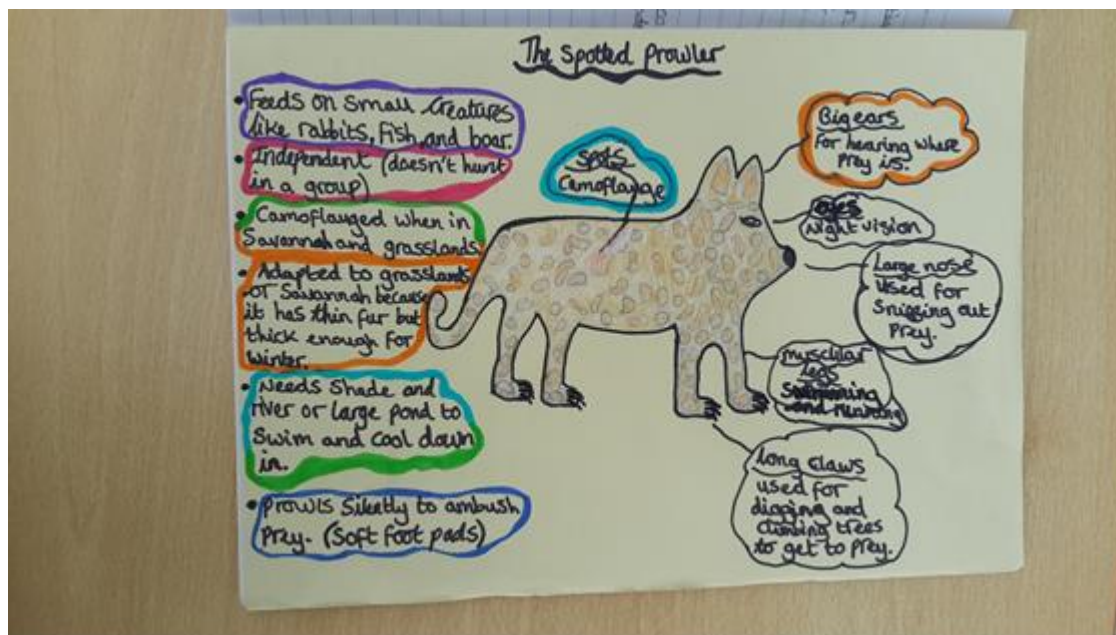 The Spotted Prowler
• Feeds on small creatures
like rabbits, fish, and boar.
• Independent (doesn't hunt
in a group)
• Camoflauged when in
Savannah and grasslands
• Adapted to grasslands
or Savannah because
it has thin fur but
thick enough for
winter.
• Needs Shade and
river or large pond to
Swim and cool down
in.
• Prowls Silently to ambush
Prey. (Soft foot pads)
Spots
Camoflauge
Big ears
For hearing where
Prey is.
eyes
Night vision
Large nose
used for
Sniffing out
Prey.
muscular
legs
Swimming
and Running
Long claws
used for
digging and
climbing trees
to get to prey.